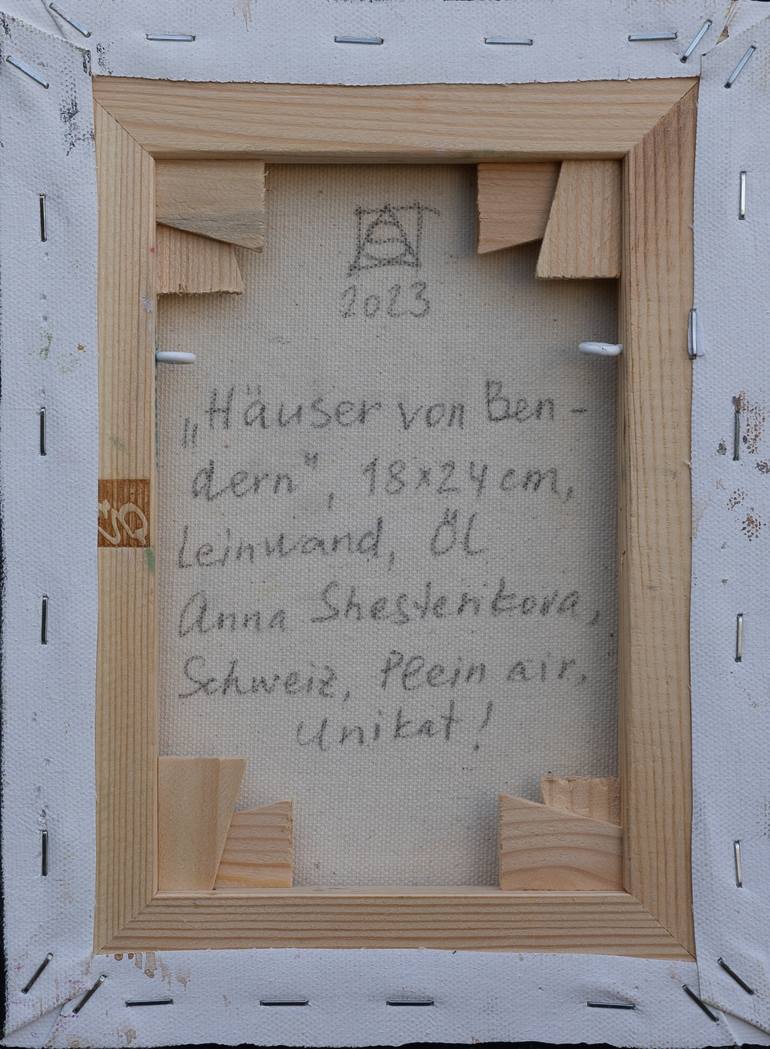 2023
„Häuser von Ben-
dern“, 18x24 cm,
Leinwand, ÖL
Anna Shesterikova,
Schweiz, Plein air,
Unikat!